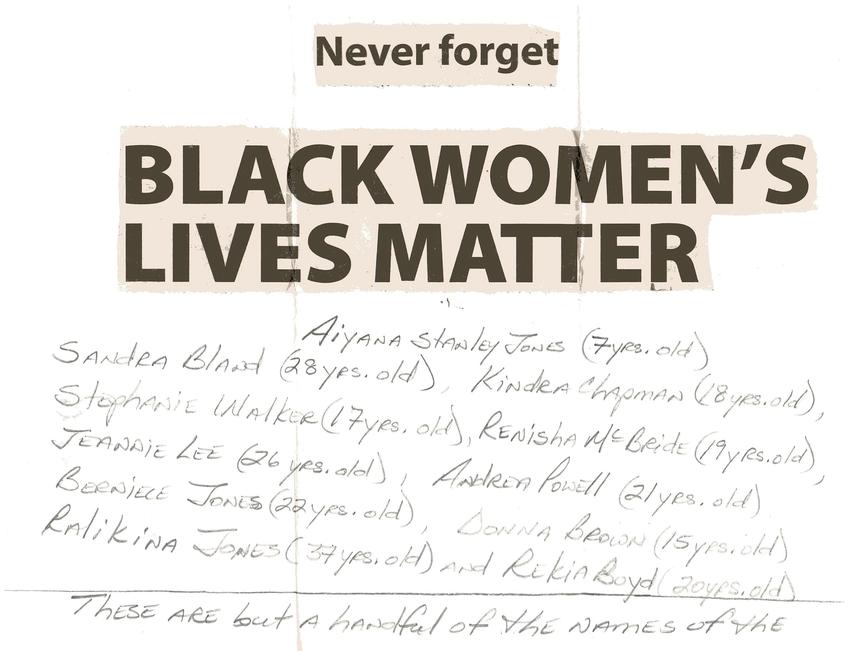 Never forget
BLACK WOMEN'S
LIVES MATTER
Aiyana Stanley Jones (7yrs. old)
Sandra Bland (28yrs. old), Kindra Chapman (18yrs.old),
Stephanie Walker (17yrs. old), Renisha McBride (19yrs.old),
Jeannie Lee (26yrs. old), Andrea Powell (21yrs. old)
Berniece Jones (22yrs. old), Donna Brown (15yrs.old)
Ralikina Jones (37yrs. old) and Rekia Boyd (20yrs.old)
These are but a handful of the names of the